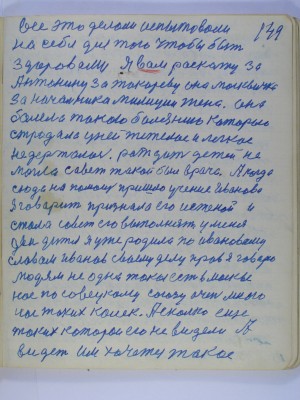 149
все это делали испытовали
на себя для того чтобы быт
здороваму Я вам раскажу за
Антонину за токореву она москвичка
за начаника милиции жена. она
болела такою болезнию которыю
страдала у ней тяжение и легкое
недержалос. раждат детей не
могла совет такой был врача. А когда
сюда на помощ пришло учение Иванова
Я говарит признала его истеной и
стала совет его выполнят у меня
два дитя я уже родила по ивановому
словам Иванов своему делу прав Я говорю
людям не одна такая ест в москве
но по совецкому союзу очен много
таких калек. А сколко еще
таких которои его не видели А
видет им хочется такое